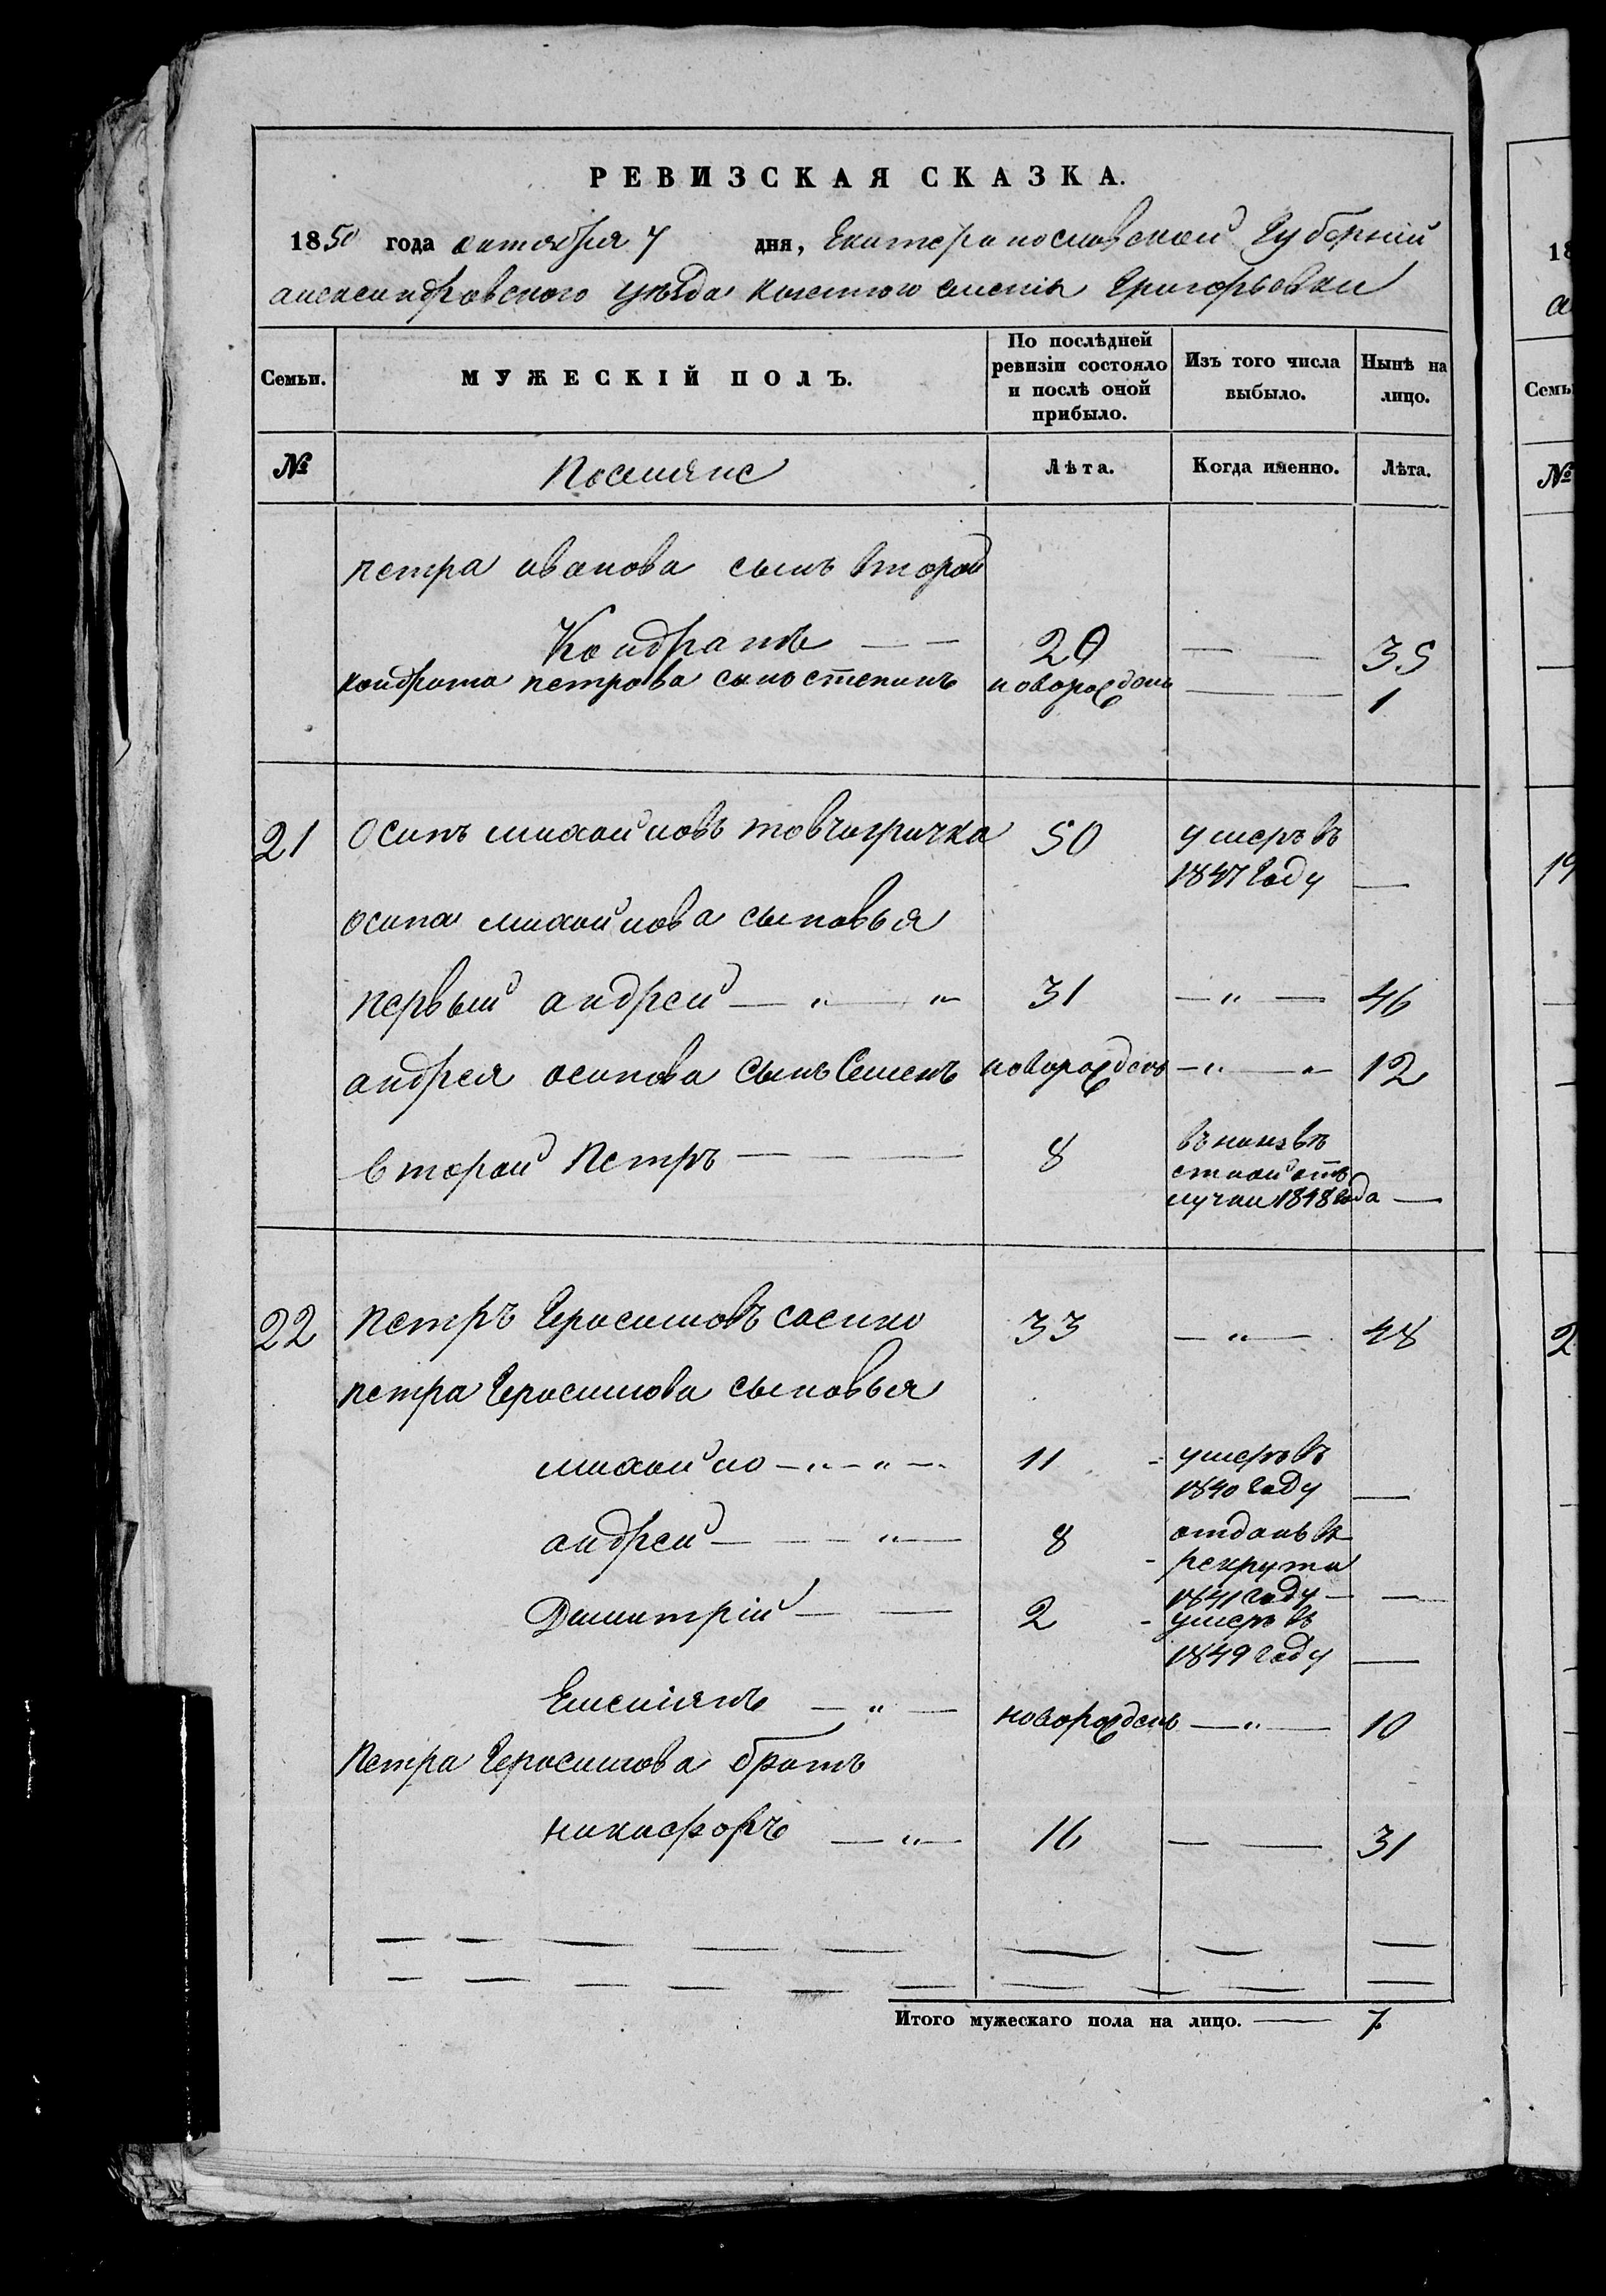 РЕВИЗСКАЯ СКАЗКА.
1850 года октября 7 дня, Екатеринославской Губерніи
александровского уезда казенного селенія Григорьевки
Семьи. МУЖЕСКІЙ ПОЛЪ. По послѣдней ревизіи состояло и послѣ оной прибыло. Изъ того числа выбыло. Нынѣ на лицо.
№ Поселяне Лѣта. Когда именно. Лѣта.
петра иванова сынъ второй
Кондратъ 20 35
кондрата петрова сынъ степанъ новорожденъ 1
21 Осипъ михайловъ товчигричка 50 умеръ въ 1847 Году
осипа михайлова сыновья
первый андрей 31 46
андрея осипова сынъ Семенъ новорожденъ 12
второй Петръ 8 отлучки 1848 года
22 Петръ Герасимовъ саенко 33 48
петра Герасимова сыновья
михайло 11 умеръ въ 1840 Году
андрей 8 отданъ в рекруты 1841 году
Димитрій 2 умеръ въ 1849 Году
Емеліянъ новорожденъ 10
Петра Герасимова братъ
никифоръ 16 31
Итого мужескаго пола на лицо. 7
18
а
Семь
№
19
2